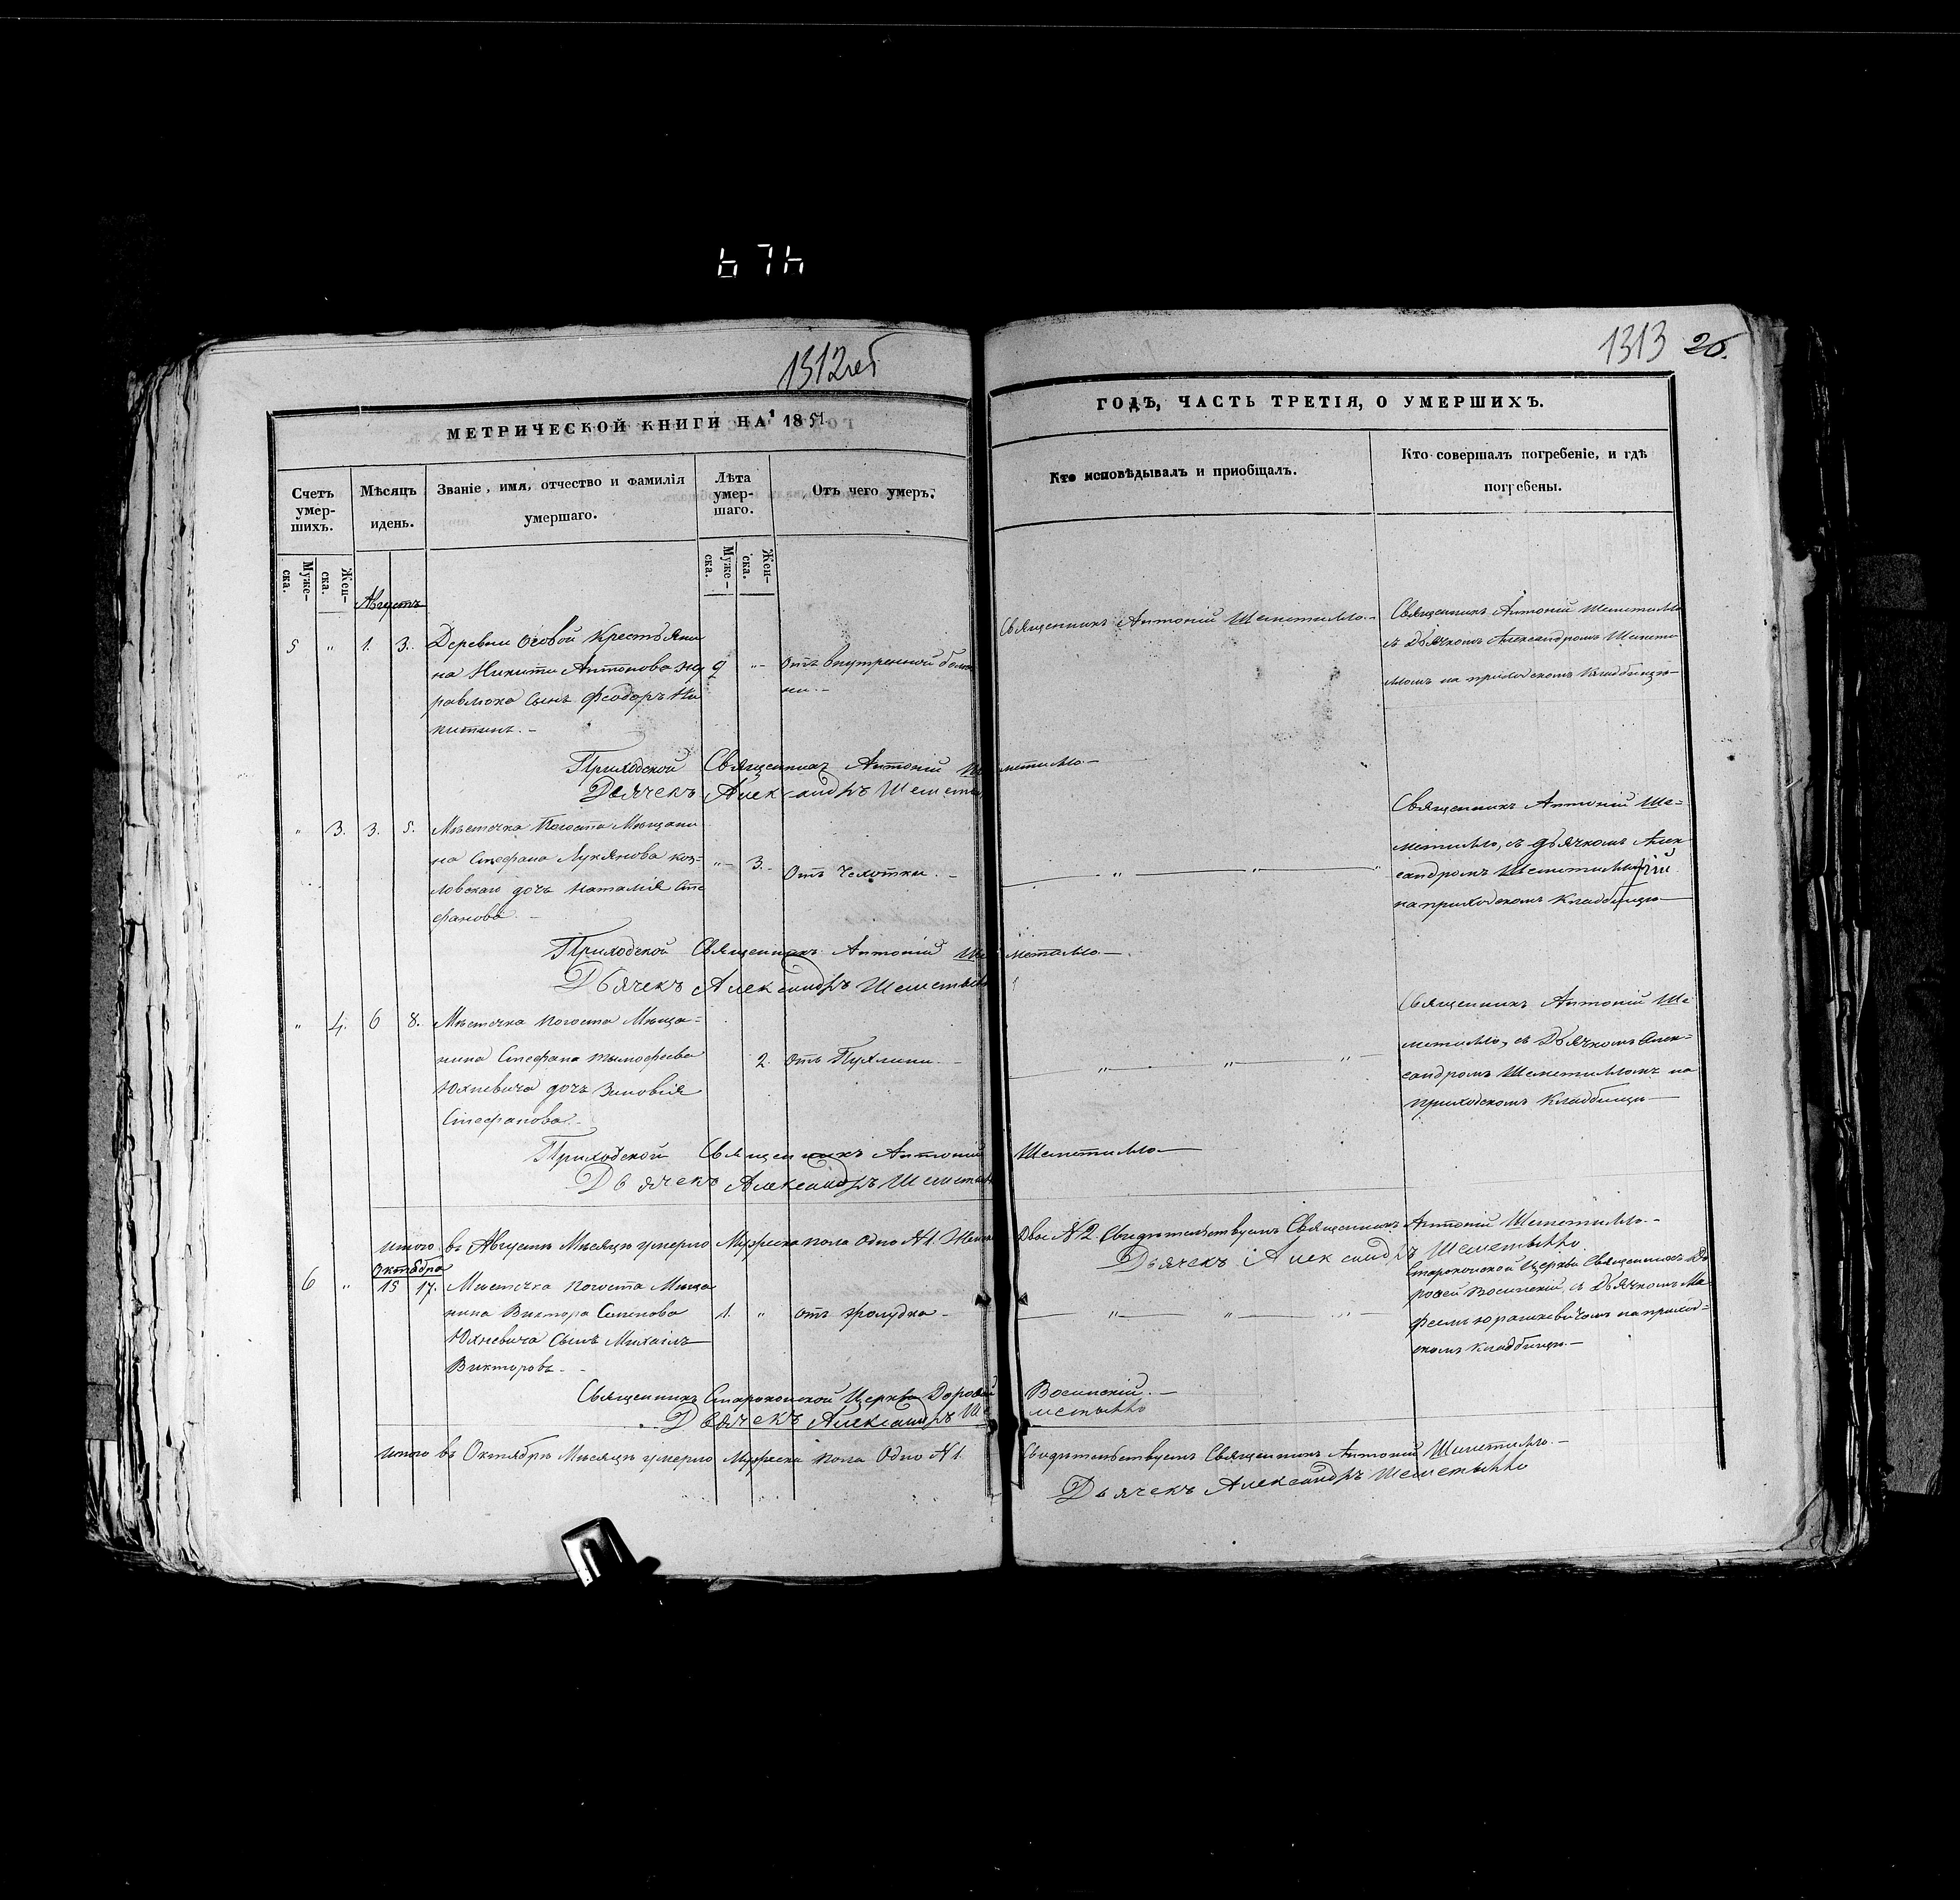 1312об
1313 26.
МЕТРИЧЕСКОЙ КНИГИ НА 1851
ГОДЪ, ЧАСТЬ ТРЕТІЯ, О УМЕРШИХЪ.
Счетъ умер-шихъ.
Мѣсяцъ идень.
Званіе, имя, отчество и фамилія
умершаго.
Лѣта умер-шаго.
Отъ чего умеръ.
Кто исповѣдывалъ и приобщалъ.
Кто совершалъ погребеніе, и гдѣ
погребены.
Муже-ска.
Жен-ска.
Муже-ска.
Жен-ска.
Августъ
5 " 1. 3.
Деревни Осовой Крестьяни
на Никиты Антонова
равлюка сынъ Феодоръ Ни
китинъ. -
9 "
Отъ внутренной болѣз
ни. -
Священникъ Антоній Шеметилло. -
Священникъ Антоній Шеметилло
съ Дьячкомъ Александромъ Шемети
лломъ на приходскомъ Кладбищѣ
Приходской Священникъ Антоній Шеметилло -
Дьячекъ Александръ Шеметы
" 3. 3. 5.
Мѣстечка Погоста Мѣщани
на Стефана Лукянова Коз=
ловскаго дочь Наталія Сте
фанова. -
" 3.
Отъ Чехотки. -
" " "
Священникъ Антоній Ше=
метилло, съ дьячкомъ Алек
сандромъ
на приходскомъ Кладбищѣ
Приходской Священникъ Антоній Шеметилло. -
Дьячекъ Александръ Шеметылло
" 4. 6 8.
Мѣстечка Погоста Мѣща=
нина Стефана Тымофеева
Юхневича дочь Зиновія
Стефанова. -
2.
Отъ Пухлины. -
" " "
Священникъ Антоній Ше
метилло, съ Дьячкомъ Алек=
сандромъ Шеметилломъ на
приходскомъ Кладбищѣ
Приходской Священникъ Антоній Шеметилло
Дьячекъ Александръ Шеметылло
Итого въ Августѣ Мѣсяцѣ умерло Мужеска пола Одно №1. Женска Двое №2. Свидѣтельствуемъ Священникъ Антоній Шеметилло. -
Дьячекъ Александръ Шеметылло
Октября
6 " 15 17.
Мѣстечка Погоста Мѣща
нина Виктора Семенова
Юхневича Сынъ Михаилъ
Викторовъ. -
1. "
Отъ Жолудка -
" " "
Староконской Церкви Священникъ До
рофей Восинскій, съ Дьячкомъ Ма
феемъ Юрашкевичомъ на приход=
скомъ Кладбищѣ. -
Священникъ Староконской Церкви Дорофей Восинскій. -
Дьячекъ Александръ Шеметылло
Итого въ Октябрѣ Мѣсяцѣ умерло Мужеска пола Одно №1. Свидѣтельствуемъ Священникъ Антоній Шеметилло. -
Дьячекъ Александръ Шеметылло